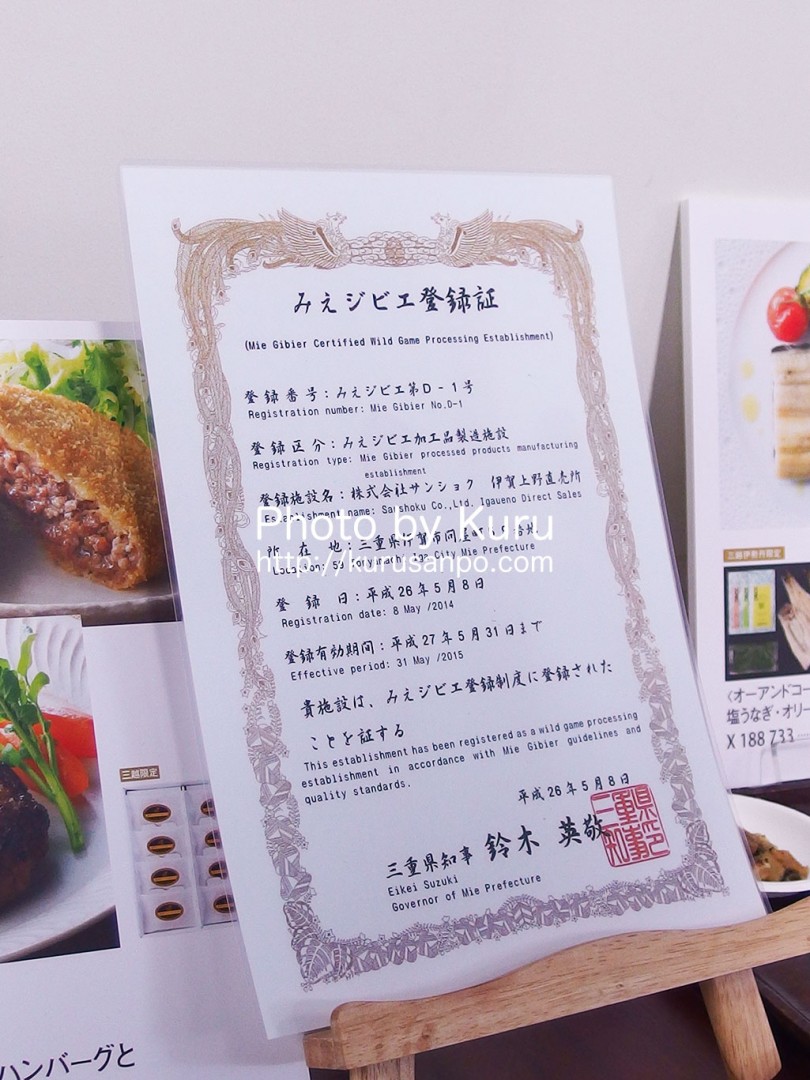 みえジビエ登録証
(Mie Gibier Certified Wild Game Processing Establishment)
登録番号：みえジビエ第D-1号
Registration number: Mie Gibier No.D-1
登録区分：みえジビエ加工品製造施設
Registration type: Mie Gibier processed products manufacturing
establishment
登録施設名：株式会社サンショク 伊賀上野直売所
Establishment name: Sanshoku Co.,Ltd. Igaueno Direct Sales
Photo by Kuru
所在地：三重県伊賀市
Location: Iga City Mie Prefecture
http://kurusanpo.com
登録日：平成26年5月8日
Registration date: 8 May /2014
登録有効期間：平成27年5月31日まで
Effective period: 31 May /2015
貴施設は、みえジビエ登録制度に登録された
ことを証する
This establishment has been registered as a wild game processing
establishment in accordance with Mie Gibier guidelines and
quality standards.
平成26年5月8日
三重県知事 鈴木 英敬
三重県知事印
Eikei Suzuki
Governor of Mie Prefecture
三越限定
ハンバーグと
三越伊勢丹限定
〈オーアンドコー
塩うなぎ・オリー
X 188 733